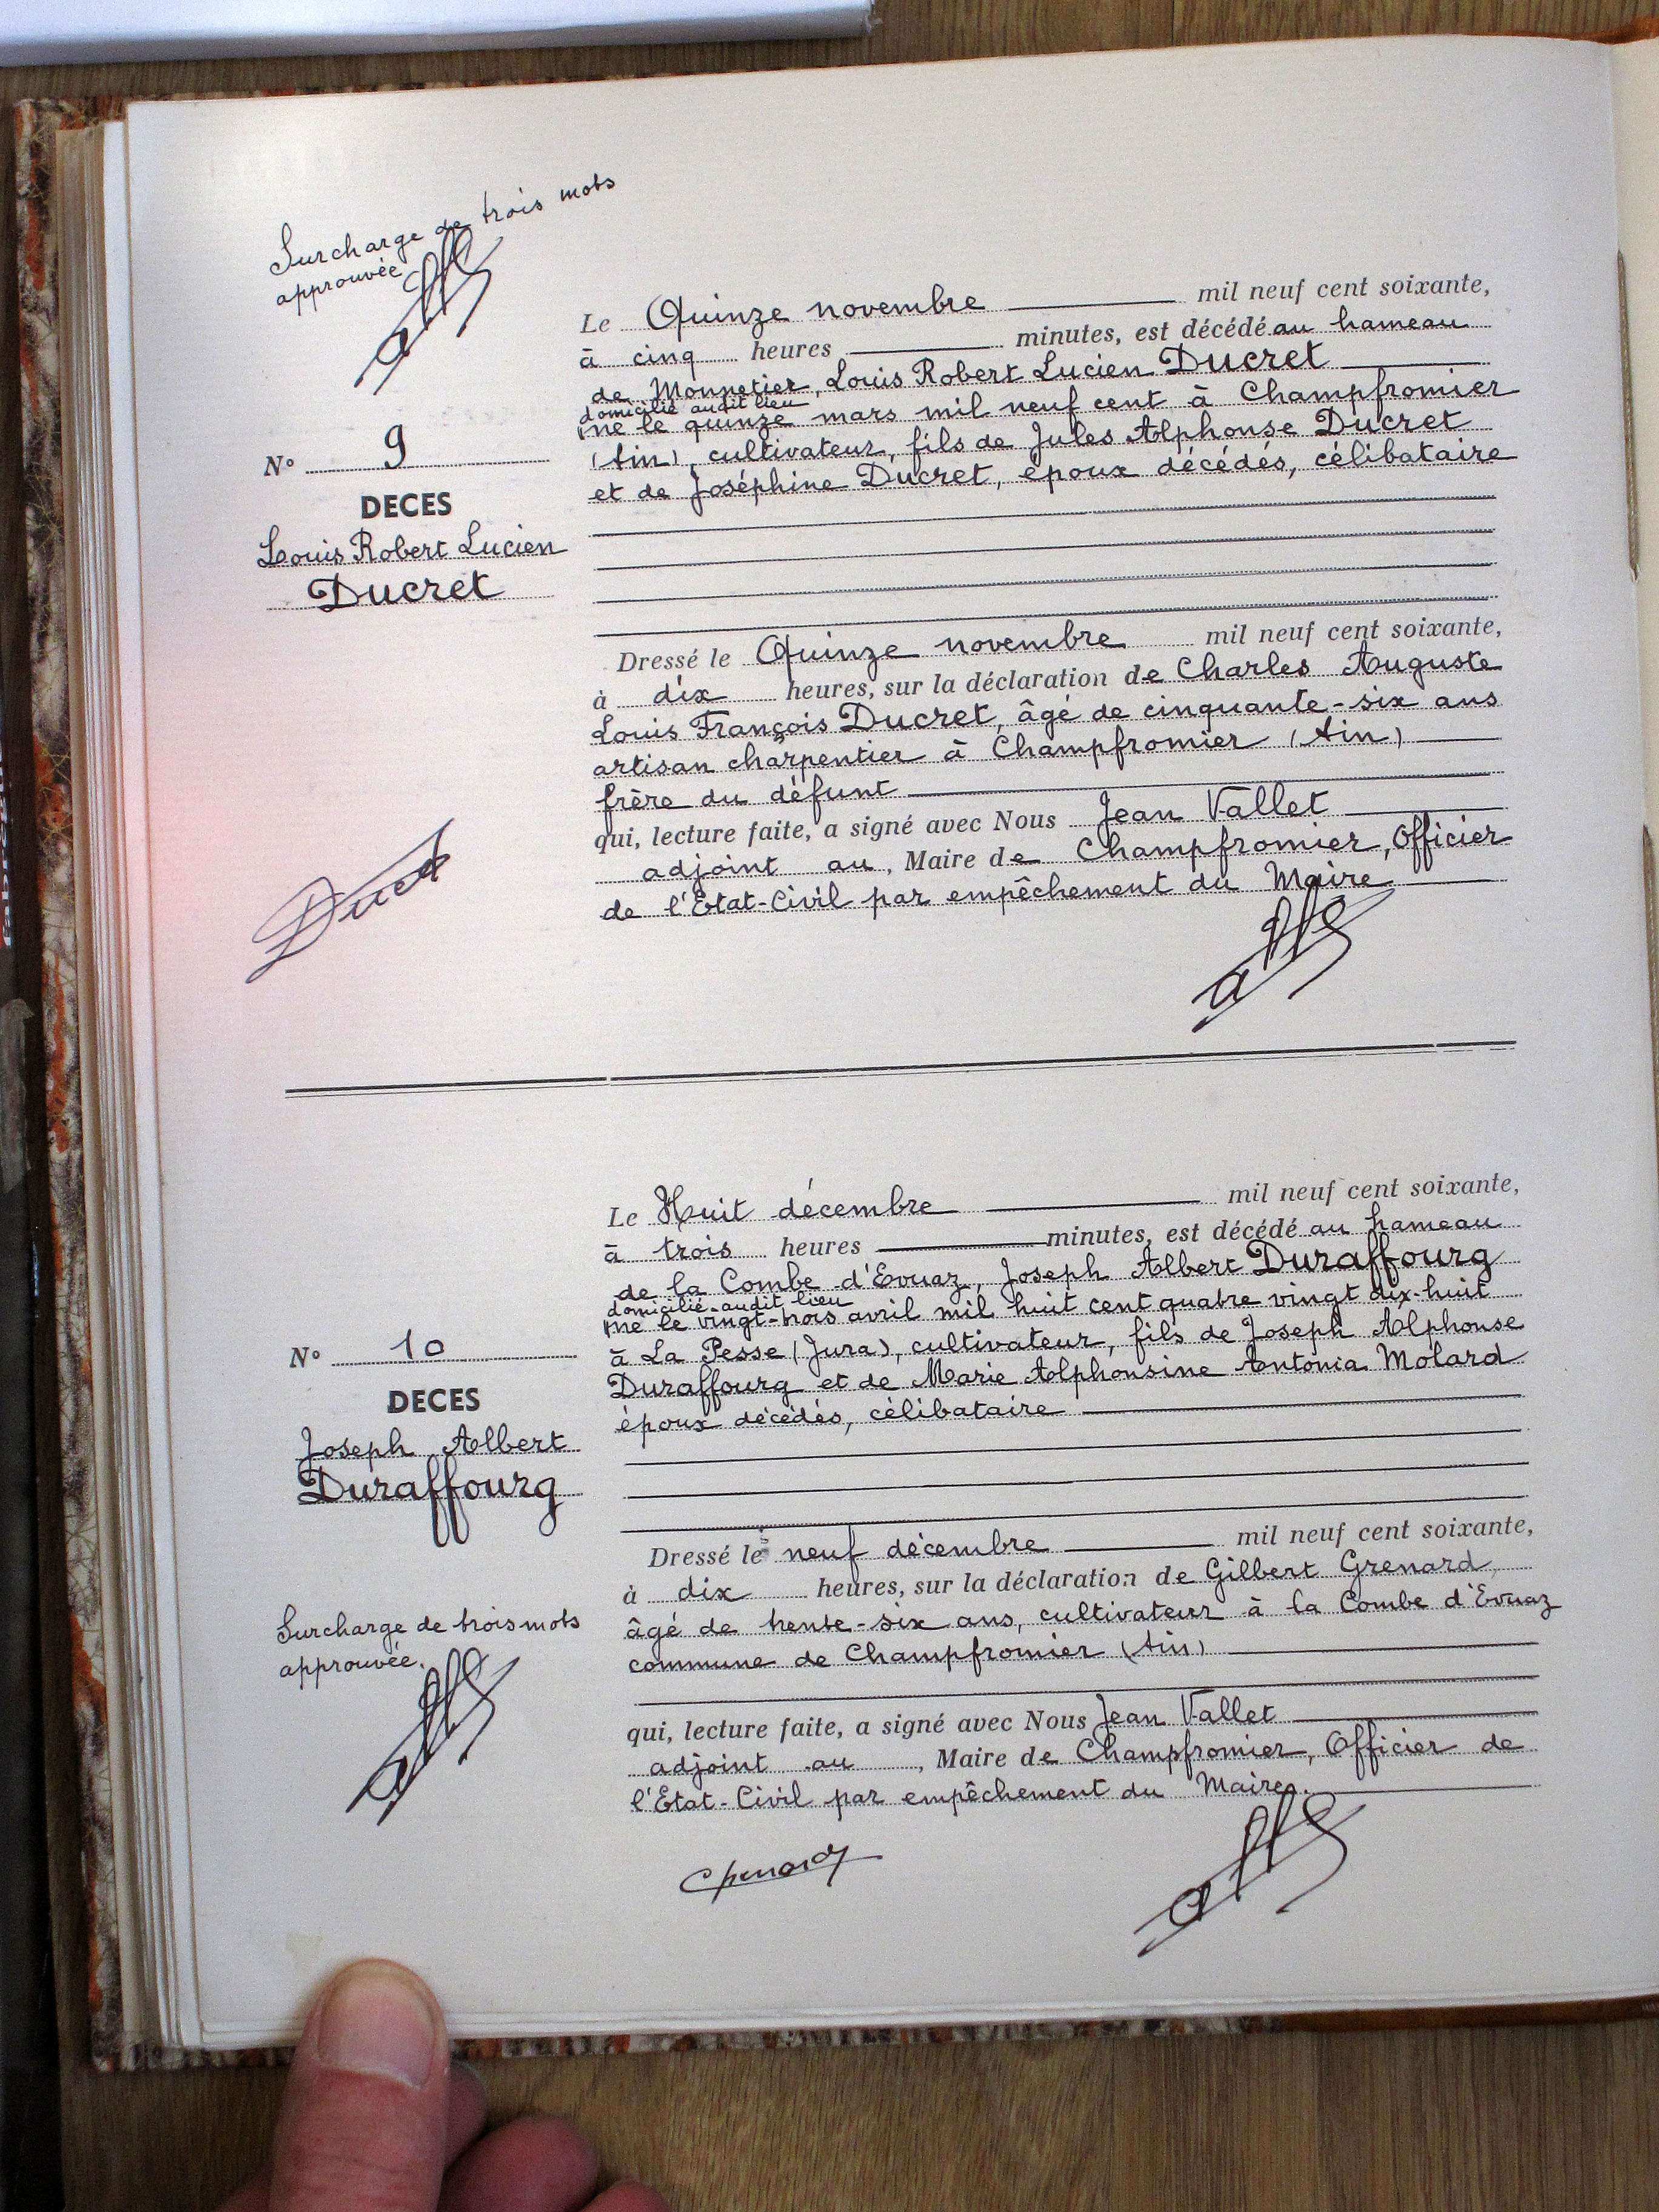 Surcharge de trois mots
approuvée
N° 9
DECES
Louis Robert Lucien
Ducret
Le Quinze novembre mil neuf cent soixante,
à cinq heures minutes, est décédé au hameau
de Monnetier, Louis Robert Lucien Ducret
domicilié audit lieu
né le quinze mars mil neuf cent à Champfromier
(Ain), cultivateur, fils de Jules Alphonse Ducret
et de Joséphine Ducret, époux décédés, célibataire
Dressé le Quinze novembre mil neuf cent soixante,
à dix heures, sur la déclaration de Charles Auguste
Louis François Ducret, âgé de cinquante-six ans
artisan charpentier à Champfromier (Ain)
frère du défunt
qui, lecture faite, a signé avec Nous Jean Vallet
adjoint au, Maire de Champfromier, Officier
de l'Etat-Civil par empêchement du Maire
N° 10
DECES
Joseph Albert
Duraffourg
Surcharge de trois mots
approuvée.
Le Huit décembre mil neuf cent soixante,
à trois heures minutes, est décédé au hameau
de la Combe d'Evuaz, Joseph Albert Duraffourg
domicilié audit lieu
né le vingt-trois avril mil huit cent quatre vingt dix-huit
à La Pesse (Jura), cultivateur, fils de Joseph Alphonse
Duraffourg et de Marie Alphonsine Antonia Molard
époux décédés, célibataire
Dressé le neuf décembre mil neuf cent soixante,
à dix heures, sur la déclaration de Gilbert Grenard,
âgé de trente-six ans, cultivateur à la Combe d'Evuaz
commune de Champfromier (Ain)
qui, lecture faite, a signé avec Nous Jean Vallet
adjoint au, Maire de Champfromier, Officier de
l'Etat-Civil par empêchement du Maire.